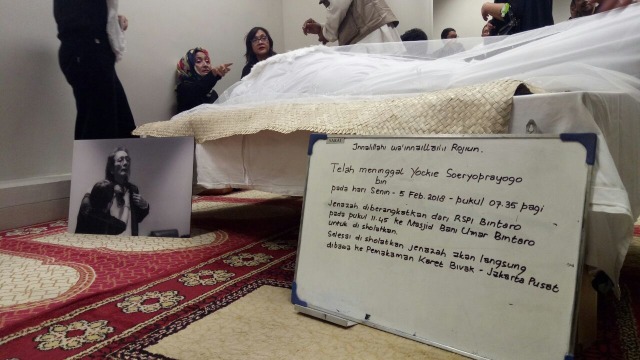 Innalillahi wa'innaillaihi Rojiun.
Telah meninggal Yockie Soeryoprayogo
bin
pada hari Senin - 5 Feb. 2018 - pukul 07.35 pagi
Jenazah diberangkatkan dari RSPI Bintaro
pada pukul 11.45 ke Masjid Bani Umar Bintaro
untuk di sholatkan.
Selesai di sholatkan jenazah akan langsung
dibawa ke Pemakaman Karet Bivak - Jakarta Pusat